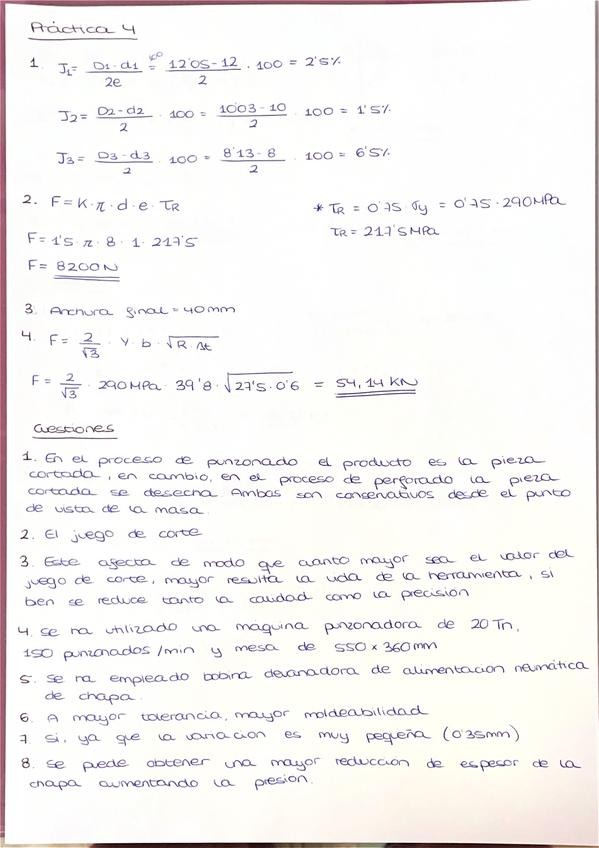 Práctica 4
1. J₁ = D₁-d₁/2e · 100 = 12'05-12/2 · 100 = 2'5%
J₂ = D₂-d₂/2 · 100 = 10'03-10/2 · 100 = 1'5%
J₃ = D₃-d₃/2 · 100 = 8'13-8/2 · 100 = 6'5%
2. F = K·π·d·e·τR
* τR = 0'75 σy = 0'75·290MPa
F = 1'5·π·8·1·217'5
τR = 217'5MPa
F = 8200N
3. Anchura final = 40mm
4. F = 2/√3 · Y·b·√R·Δt
F = 2/√3 · 290MPa · 39'8 · √27'5·0'6 = 54,14 KN
Cuestiones
1. En el proceso de punzonado el producto es la pieza
cortada, en cambio, en el proceso de perforado la pieza
cortada se desecha. Ambos son conservativos desde el punto
de vista de la masa.
2. El juego de corte
3. Este afecta de modo que cuanto mayor sea el valor del
juego de corte, mayor resulta la vida de la herramienta, si
bien se reduce tanto la calidad como la precision
4. Se ha utilizado una maquina punzonadora de 20 Tn,
150 punzonados/min y mesa de 550 x 360mm
5. Se ha empleado bobina devanadora de alimentacion neumática
de chapa.
6. A mayor tolerancia, mayor moldeabilidad
7. Si, ya que la variacion es muy pequeña (0'35mm)
8. Se puede obtener una mayor reduccion de espesor de la
chapa aumentando la presion.